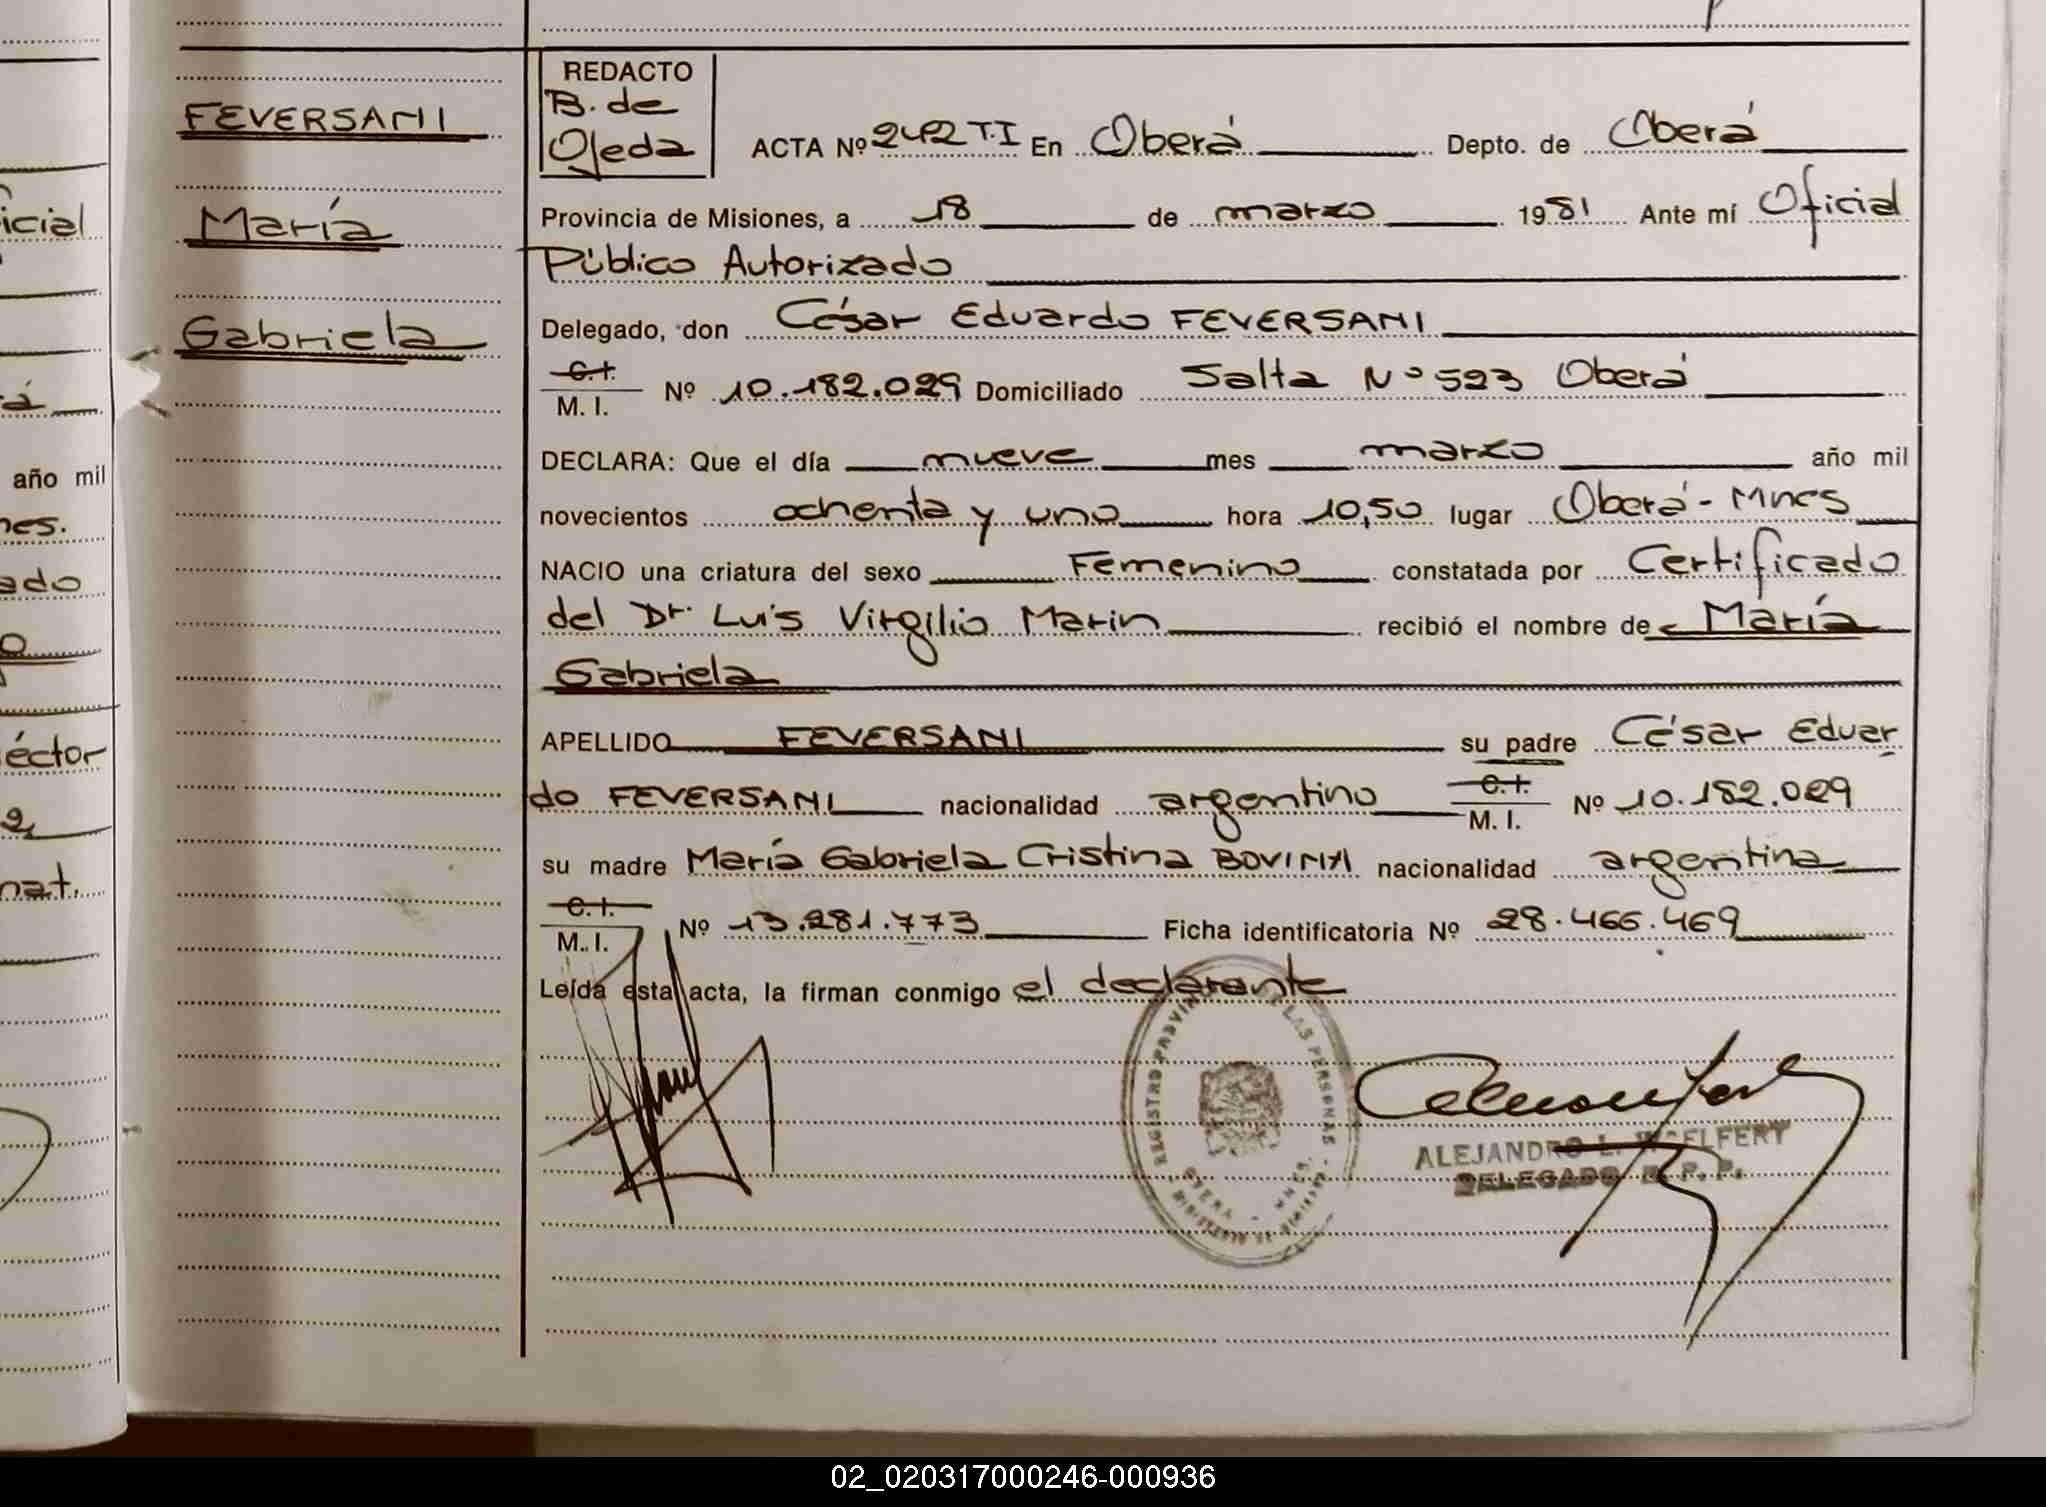 FEVERSANI
María
Gabriela
REDACTO
B. de
Ojeda
ACTA Nº 242 T.I En Oberá Depto. de Oberá
Provincia de Misiones, a 18 de marzo 1981 Ante mí Oficial
Público Autorizado
Delegado, don César Eduardo FEVERSANI
C.I.
M. I. Nº 10.182.029 Domiciliado Salta Nº 523 Oberá
DECLARA: Que el día nueve mes marzo año mil
novecientos ochenta y uno hora 10,50 lugar Oberá - Mnes
NACIO una criatura del sexo Femenino constatada por Certificado
del Dr. Luis Virgilio Marin recibió el nombre de María
Gabriela
APELLIDO FEVERSANI su padre César Eduar
do FEVERSANI nacionalidad argentino C.I. M. I. Nº 10.182.029
su madre María Gabriela Cristina BOVINA nacionalidad argentina
C.I.
M. I. Nº 13.281.773 Ficha identificatoria Nº 28.466.469
Leída esta acta, la firman conmigo el declarante
REGISTRO PROVINCIAL DE LAS PERSONAS
OBERA - MNES.
ALEJANDRO L.
DELEGADO R. P. P.
icial
á
año mil
nes.
ado
o
éctor
nat.
02_020317000246-000936